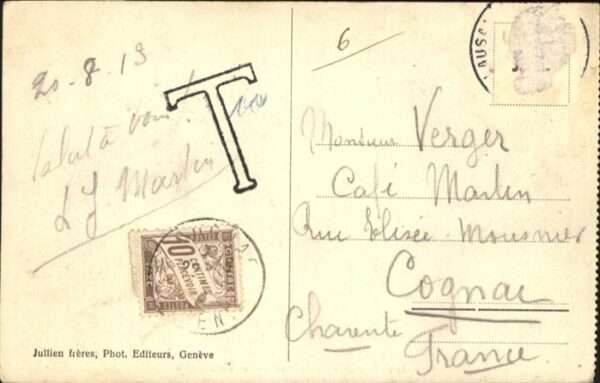 20-8-13
Salut à vous !
L J. Martin
T
10
CENTIMES
A PERCEVOIR
Jullien frères, Phot. Editeurs, Genève
6
LAUS
Monsieur Verger
Café Martin
Rue Elisée-Mousnier
Cognac
Charente
France